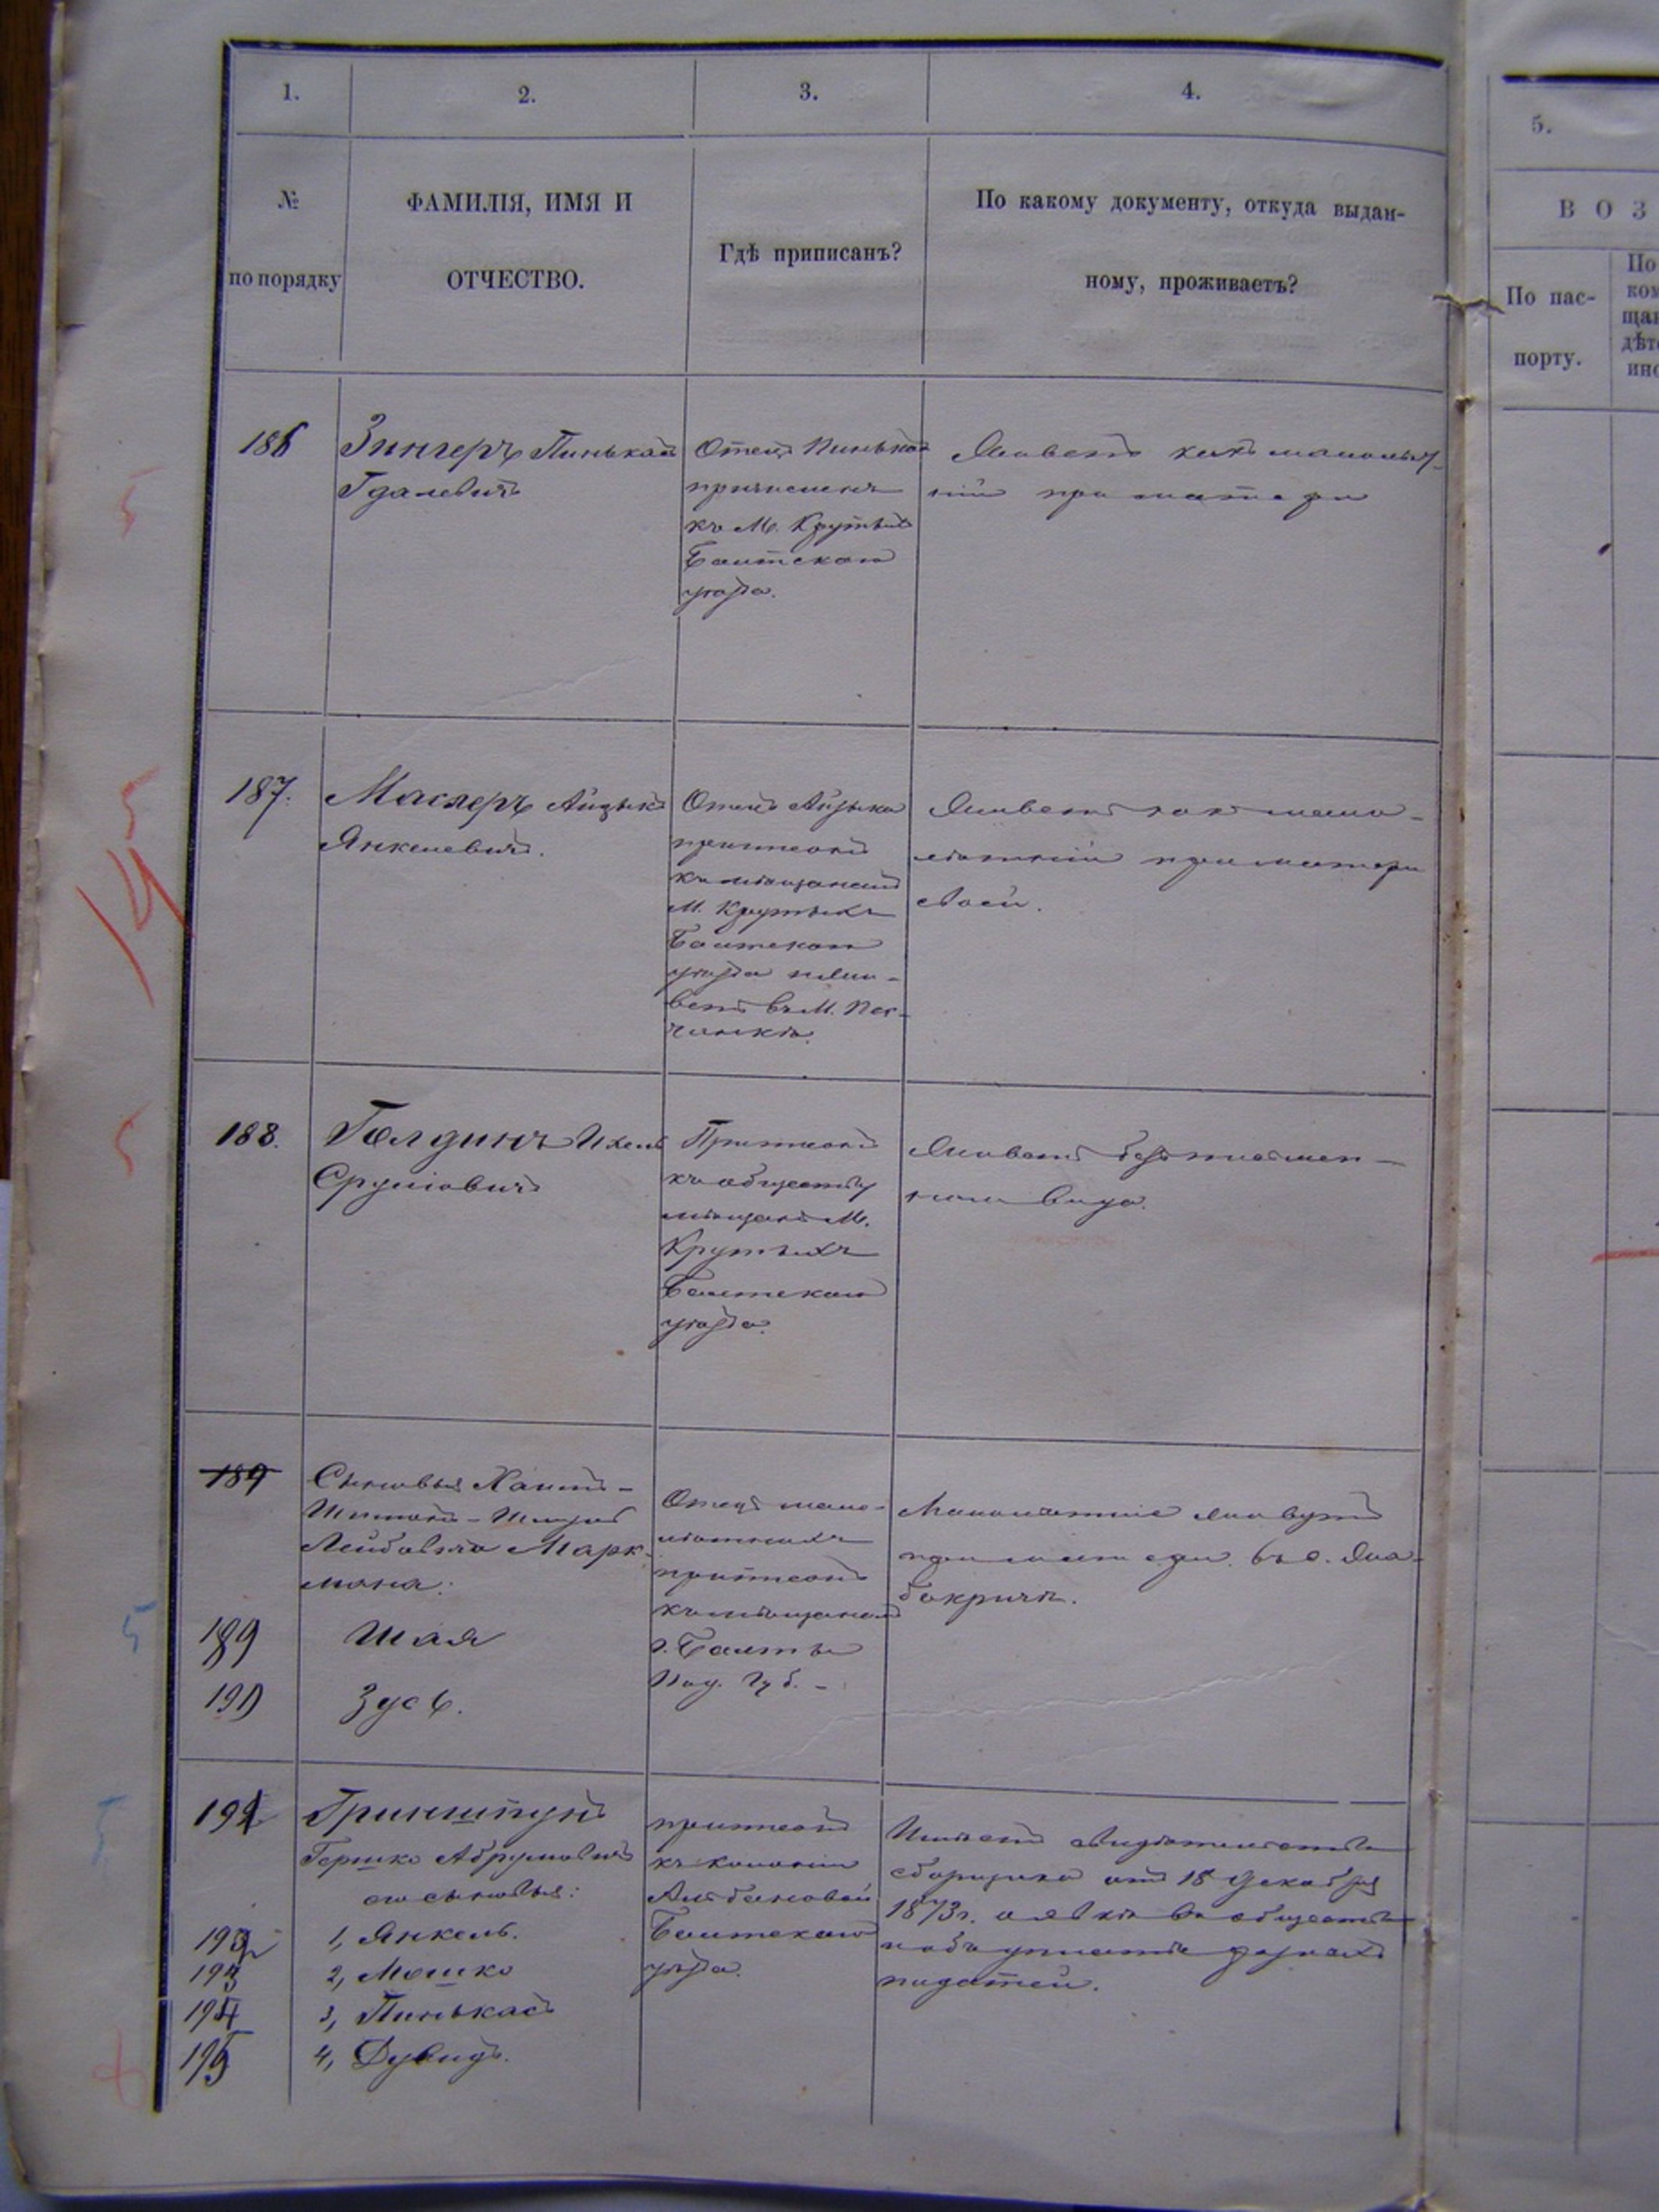 1.
2.
3.
4.
5.
№
по порядку
ФАМИЛІЯ, ИМЯ И
ОТЧЕСТВО.
Гдѣ приписанъ?
По какому документу, откуда выдан-
ному, проживаетъ?
ВОЗ
По пас-
порту.
186
Зингеръ Пинькасъ
Гдалевичъ
Отецъ Пинькаса
причисленъ
къ М. Крутымъ
Балтскаго
уѣзда.
Живетъ какъ малолѣт-
ній при матери
187.
Масляръ Айзыкъ
Янкелевичъ.
Отецъ Айзыка
приписанъ
къ мѣщанамъ
М. Крутыхъ
Балтскаго
уѣзда и жи-
ветъ въ М. Пес-
чанкѣ.
Живетъ какъ мало-
лѣтній при матери
своей.
188.
Голдинъ Ихель
Сруліовичъ
Приписанъ
къ обществу
мѣщанъ М.
Крутыхъ
Балтскаго
уѣзда.
Живетъ безъ писмен-
наго вида.
189
Сыновья Хаимъ-
Лейбовича Марк-
мана:
189 Шая
190 Зусь.
Отецъ мало-
лѣтнихъ
приписанъ
къ мѣщанамъ
г. Балты
Под. Губ. -
Малолѣтніе живутъ
при матери въ с. Жа-
бокричѣ.
191
Гринштунъ
Гершко Абрумовичъ
его сыновья:
192 1, Янкель.
193 2, Мошко
194 3, Пинькасъ
195 4, Дувидъ.
приписанъ
къ колоніи
Балтскаго
уѣзда.
Имѣетъ свидѣтельство
сборщика отъ 18 Декабря
1873 г. о явкѣ въ общество
и объ уплатѣ
податей.